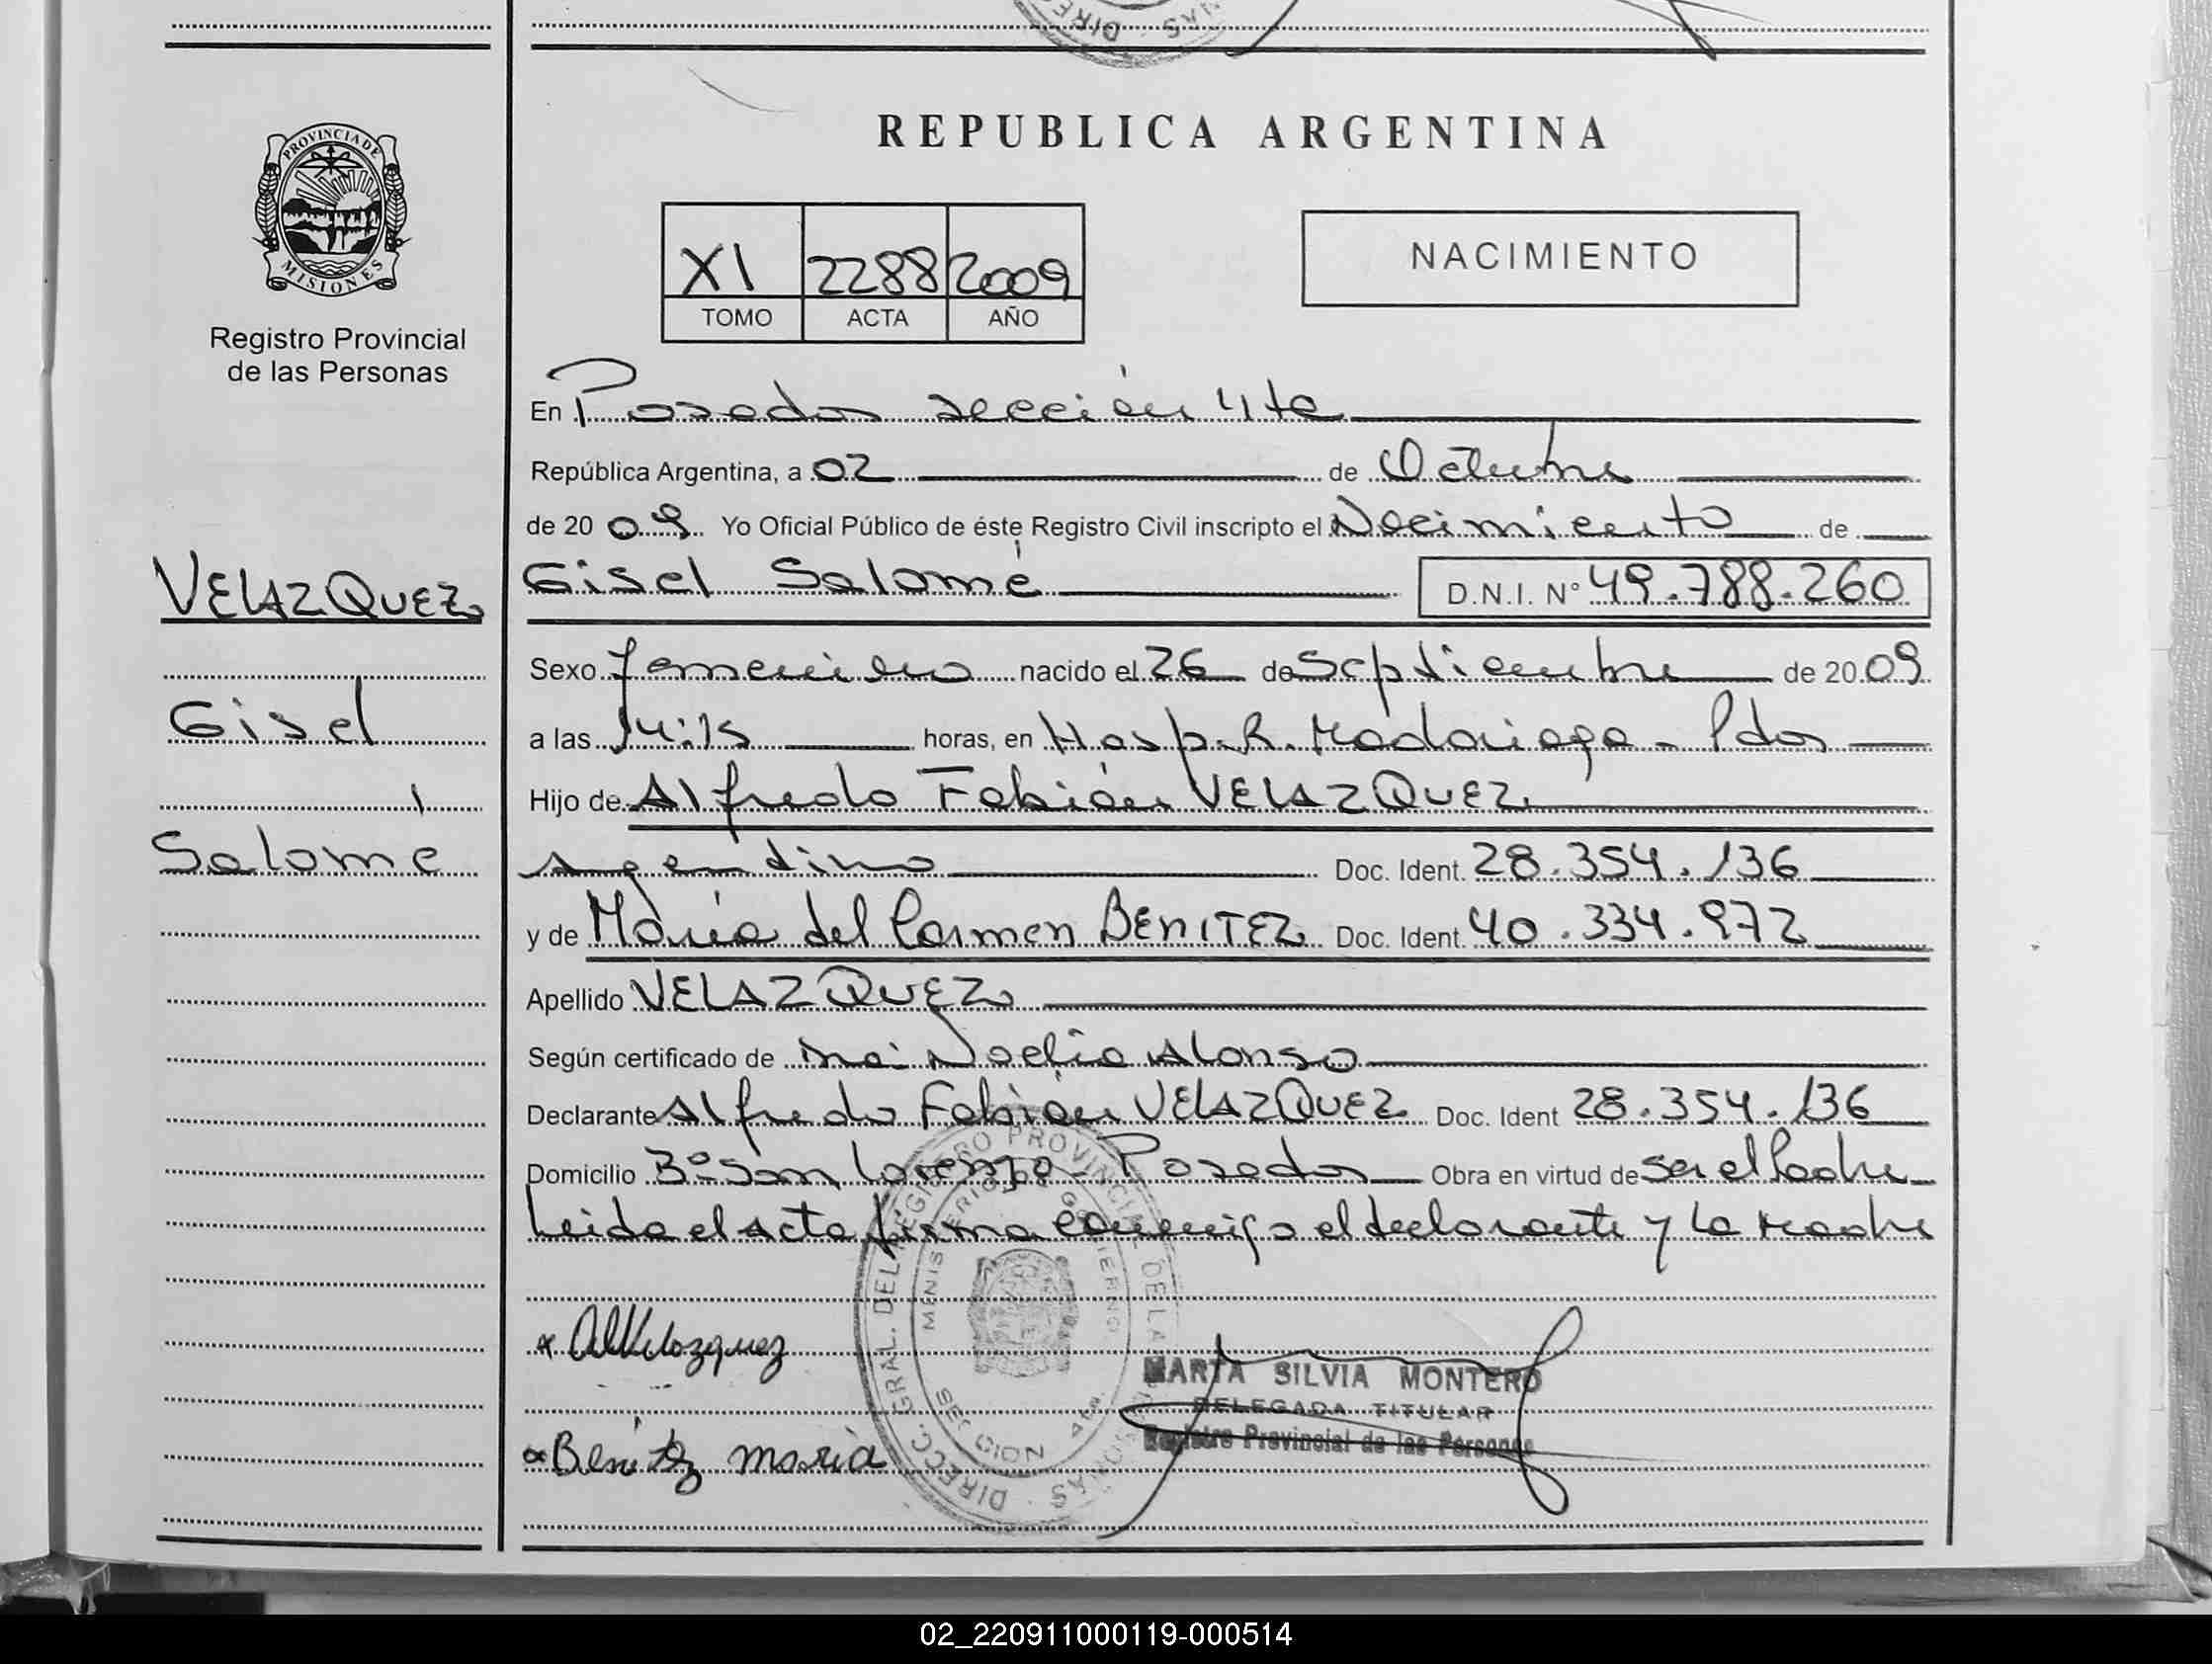 PROVINCIA DE
MISIONES
Registro Provincial
de las Personas
VELAZQUEZ
Gisel
Salomé
REPUBLICA ARGENTINA
XI 2288 2009
TOMO ACTA AÑO
NACIMIENTO
En Posadas sección 4ta
República Argentina, a 02 de Octubre
de 20 09 Yo Oficial Público de éste Registro Civil inscripto el Nacimiento de
Gisel Salomé D.N.I. N° 49.788.260
Sexo femenino nacido el 26 de Septiembre de 20 09
a las 14:15 horas, en Hosp. R. Madariaga - Pdas
Hijo de Alfredo Fabián VELAZQUEZ
argentino Doc. Ident. 28.354.136
y de María del Carmen BENITEZ Doc. Ident. 40.334.972
Apellido VELAZQUEZ
Según certificado de Noelia Alonso
Declarante Alfredo Fabián VELAZQUEZ Doc. Ident 28.354.136
Domicilio B° San Lorenzo - Posadas Obra en virtud de ser el Padre
Leida el acta firma conmigo el declarante y la Madre
DIRECC. GRAL. DEL REGISTRO PROVINCIAL DE LAS PERSONAS
MINISTERIO DE GOBIERNO
SECCION 4ta.
Benitez maria
MARTA SILVIA MONTERO
DELEGADA TITULAR
Registro Provincial de las Personas
02_220911000119-000514